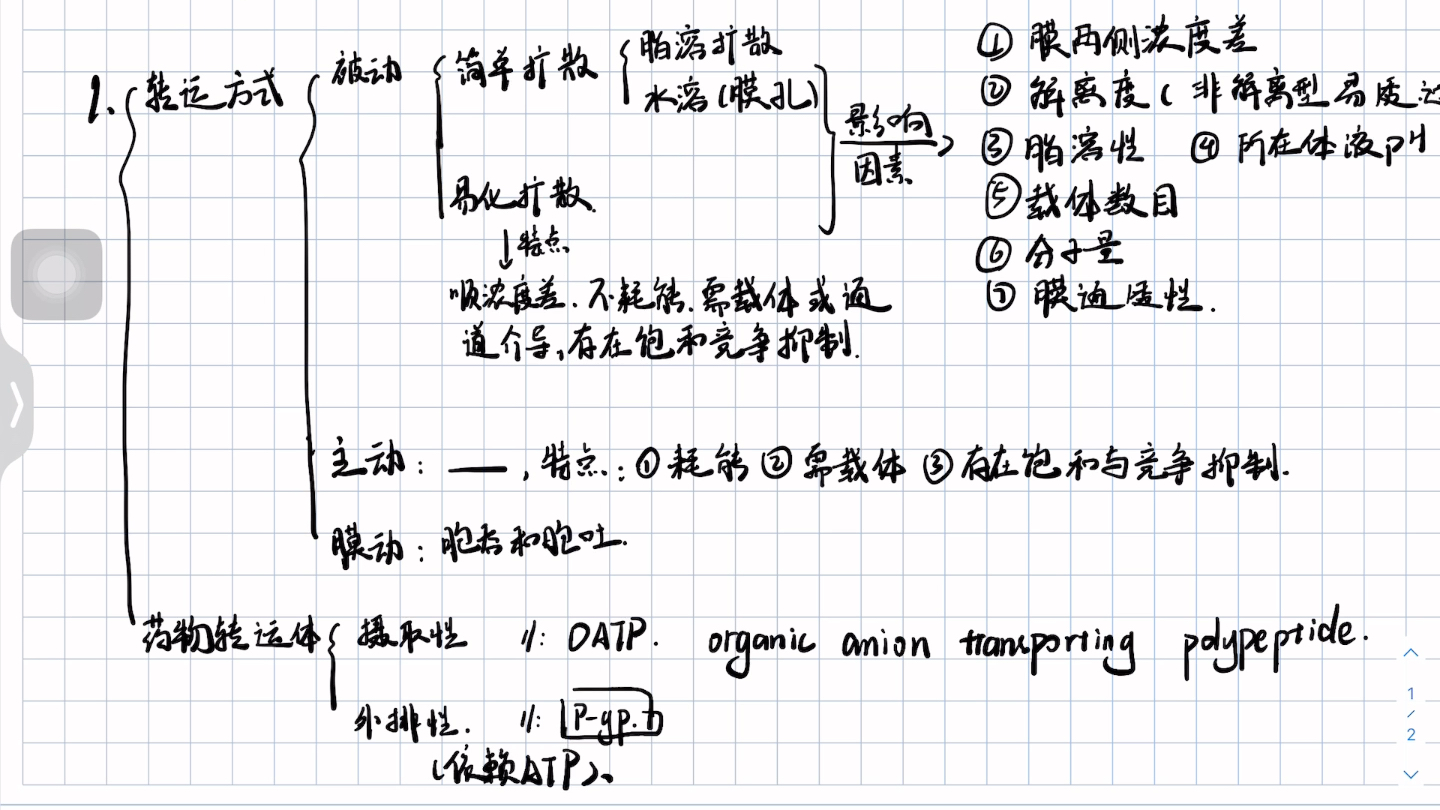 1. 转运方式
被动
简单扩散
脂溶扩散
水溶(膜孔)
易化扩散.
↓特点
顺浓度差.不耗能.需载体或通
道介导,存在饱和竞争抑制.
影响
因素
① 膜两侧浓度差
② 解离度( 非解离型易质
③ 脂溶性 ④ 所在体液pH
⑤ 载体数目
⑥ 分子量
⑦ 膜通透性.
主动: —— ,特点:①耗能②需载体③存在饱和与竞争抑制.
膜动:胞吞和胞吐.
药物转运体
摄取性 //: OATP. organic anion transporting polypeptide.
外排性. //: P-gp.
(依赖ATP)、
1
/
2